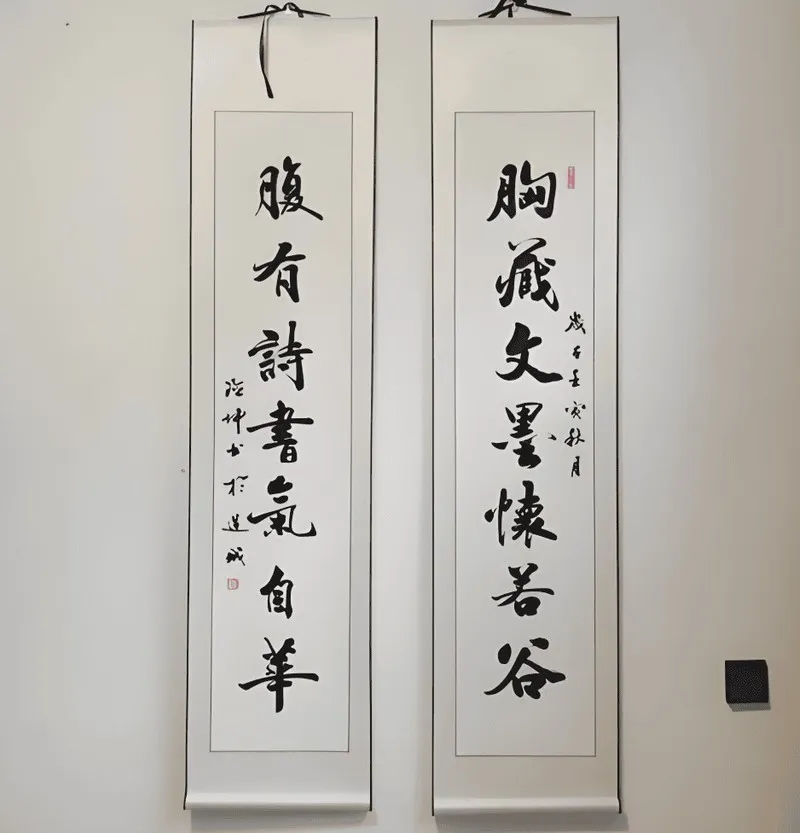 胸藏文墨懷若谷
歲在壬寅秋月
腹有詩書氣自華
坤书於蓮城